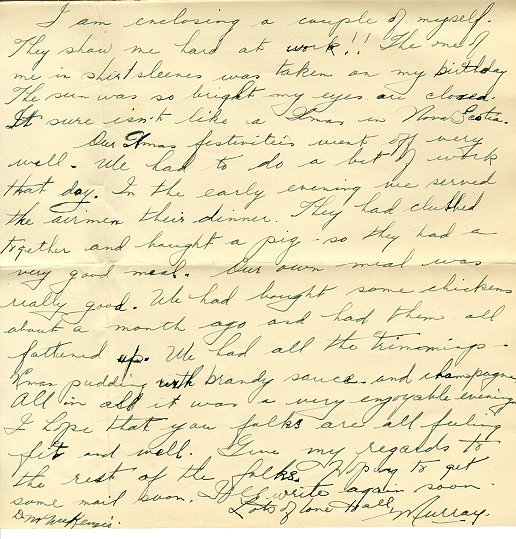 I am enclosing a couple of myself.
They show me hard at work!! The one of
me in shirt sleeves was taken on my birthday
The sun was so bright my eyes are closed.
It sure isn't like a Xmas in Nova Scotia.
Our Xmas festivities went off very
well. We had to do a bit of work
that day. In the early evening we served
the airmen their dinner. They had clubbed
together and bought a pig - so they had a
very good meal. Our own meal was
really good. We had bought some chickens
about a month ago and had them all
fattened up. We had all the trimmings -
Xmas pudding with brandy sauce and champagne
All in all it was a very enjoyable evening
I hope that you folks are all feeling
fit and well. Give my regards to
the rest of the folks. Hoping to get
some mail soon. I'll write again soon.
Lots of love to all
Murray.